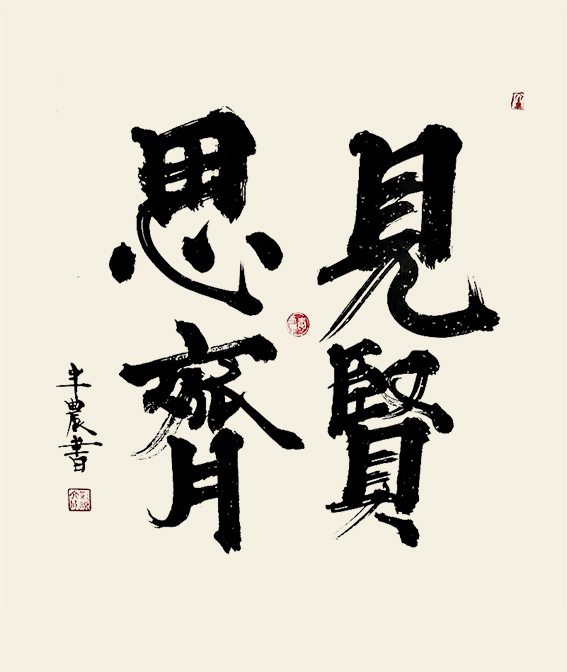 見賢
思齊
半農書